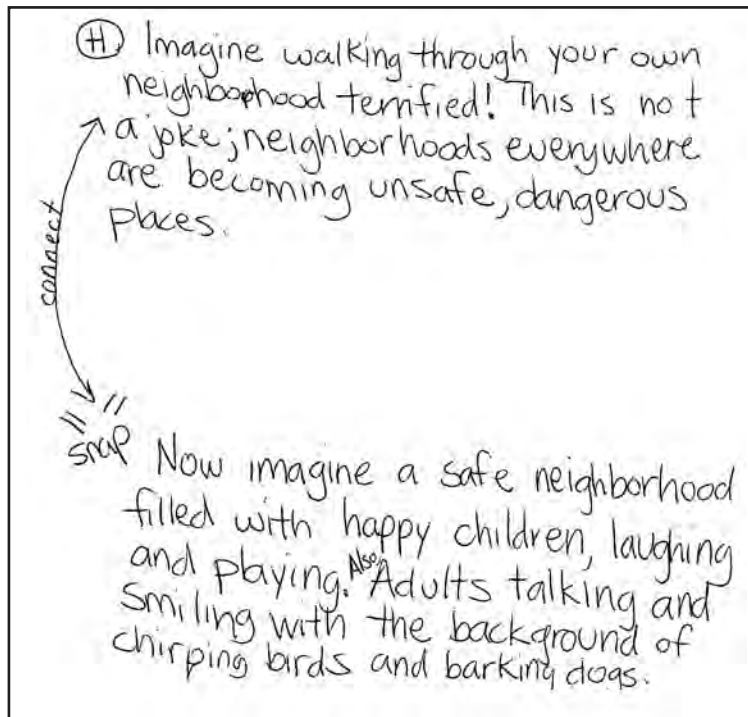 (H) Imagine walking through your own
neighborhood terrified! This is not
a joke; neighborhoods everywhere
are becoming unsafe, dangerous
places.
connect
snap Now imagine a safe neighborhood
filled with happy children, laughing
and playing. Also, Adults talking and
smiling with the background of
chirping birds and barking dogs.